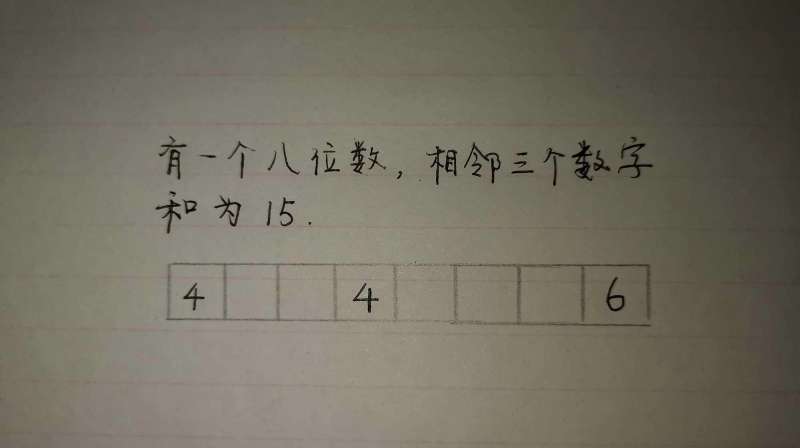 有一个八位数，相邻三个数字
和为15.
4 4 6